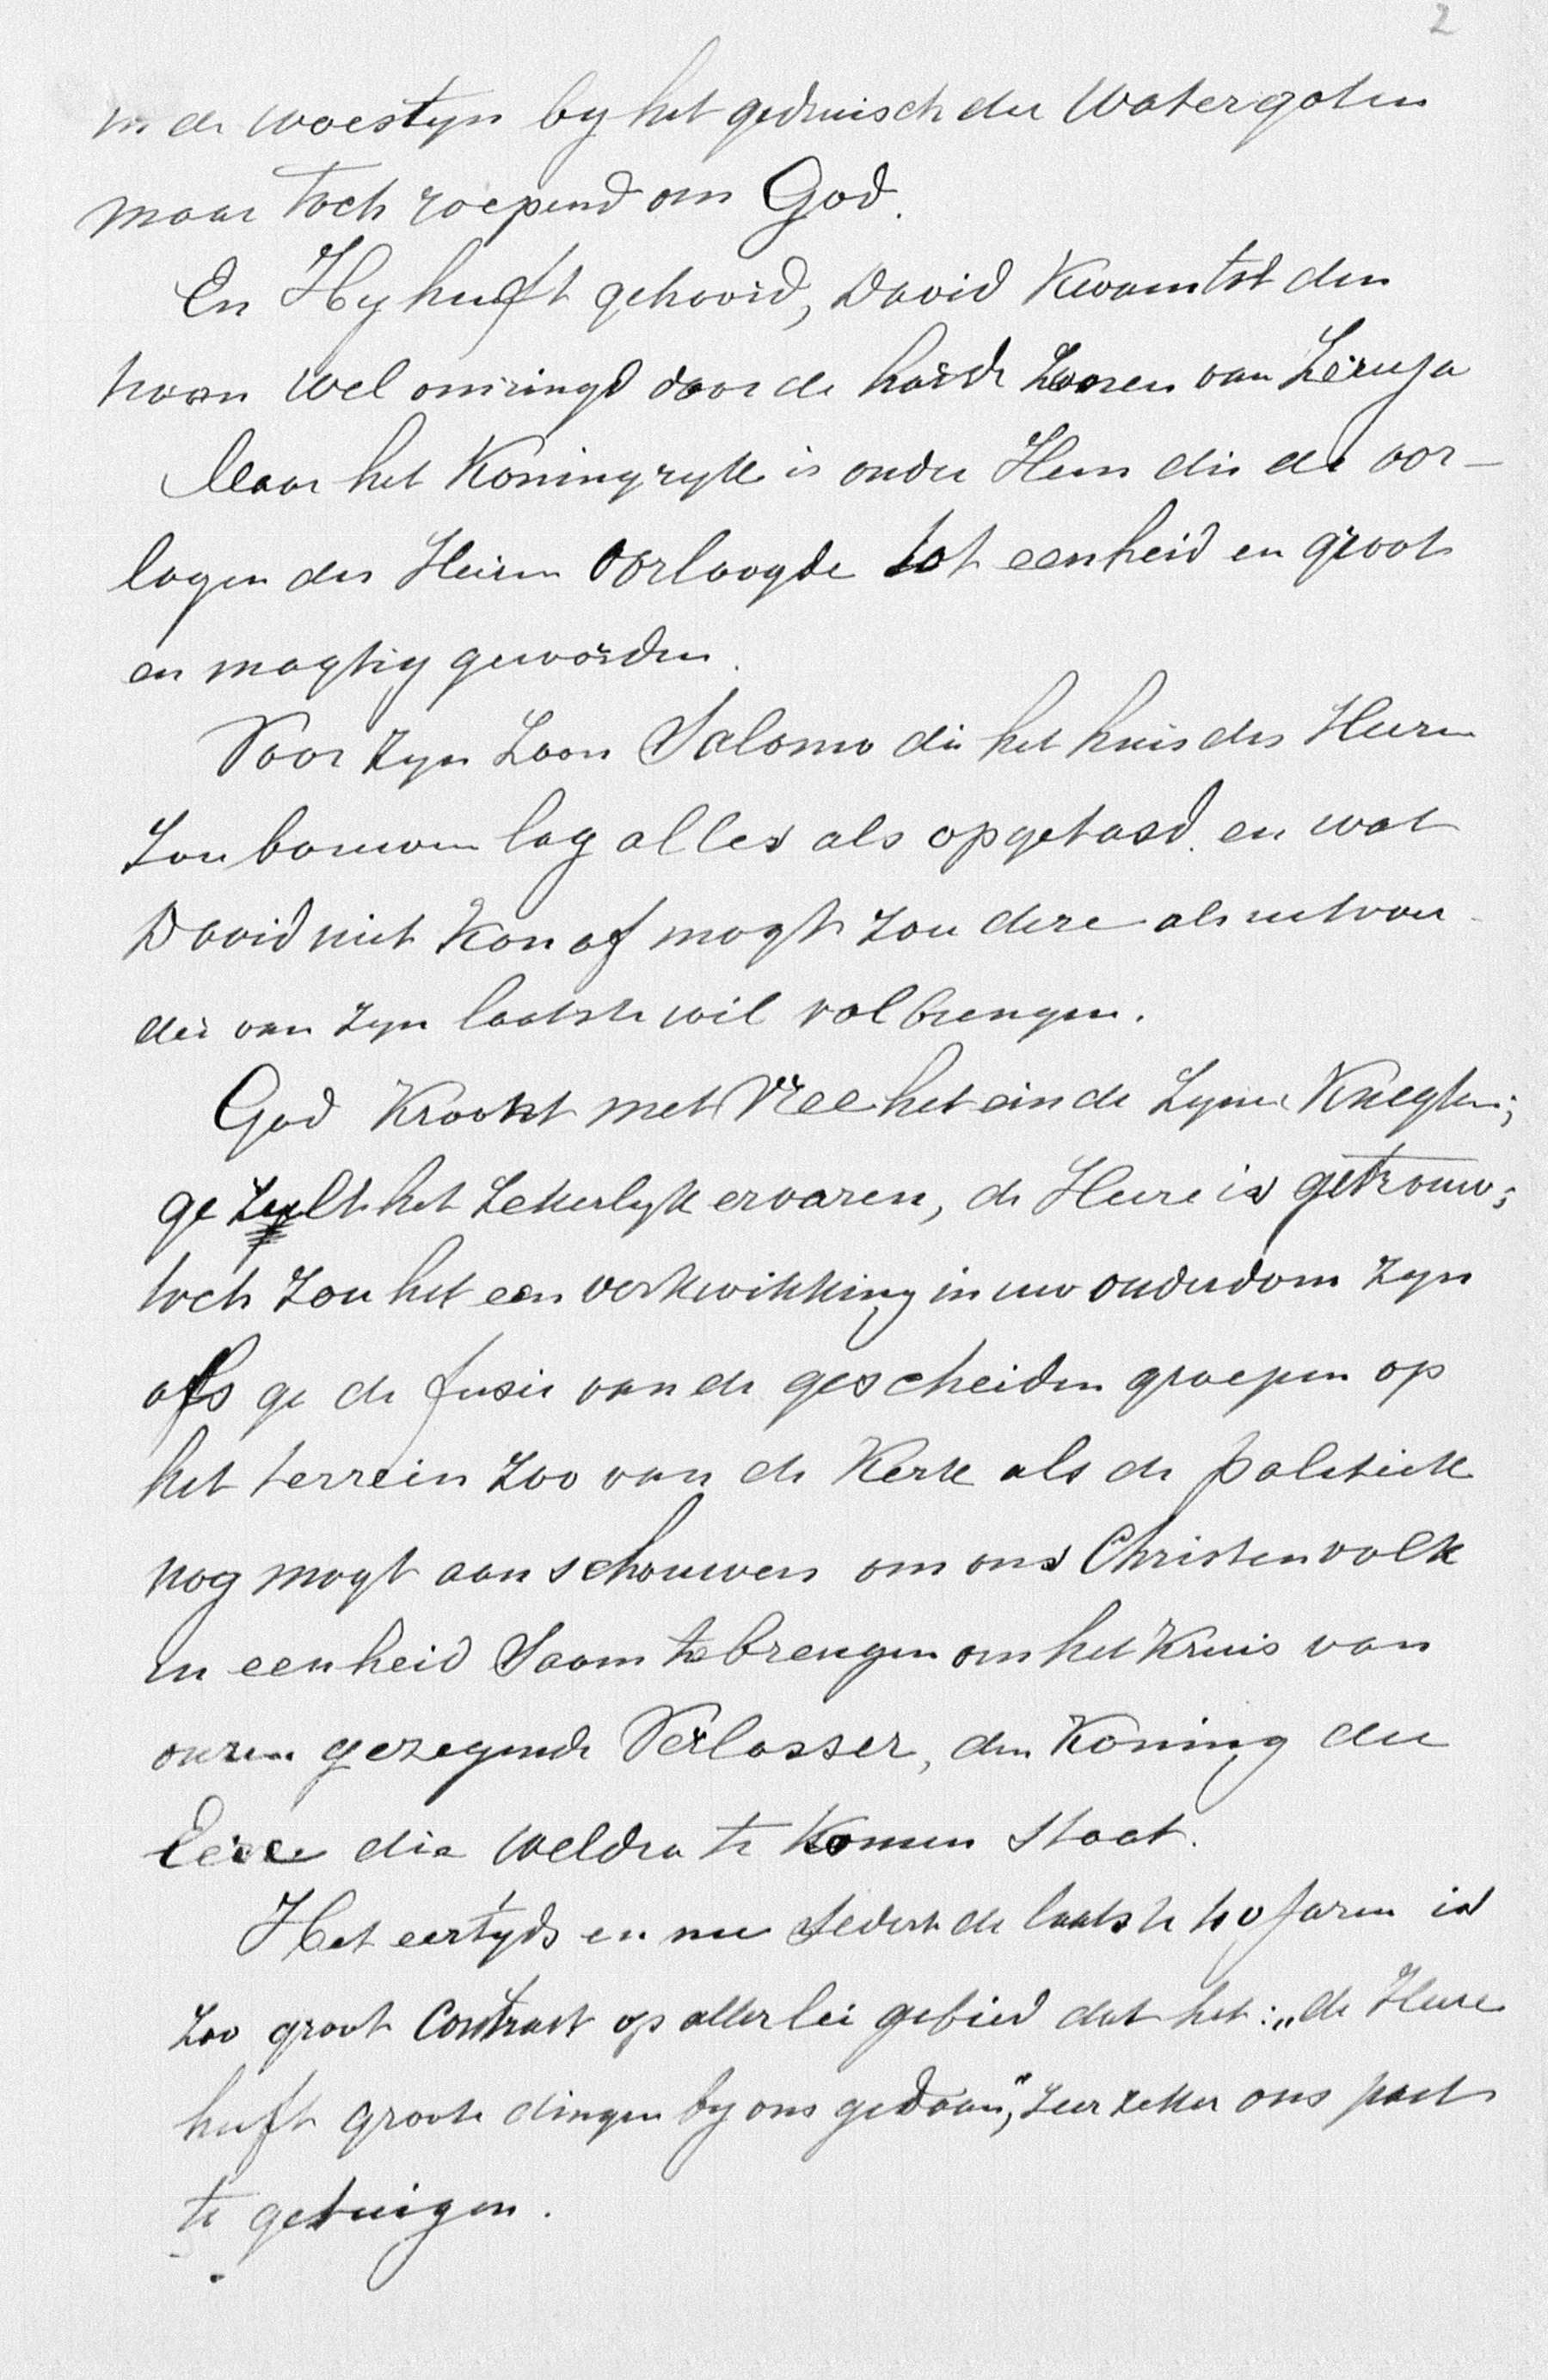 2
in de woestyn by het gedruisch der watergoten
maar toch roepend om God.
En Hy heeft gehoord, David kwam tot den
troon wel omringd door de harde zonen van Zeruja
Maar het Koningryk is onder Hem die de oor-
logen des Heeren oorloogde tot eenheid en groot
en magtig geworden.
Voor zyn Zoon Salomo die het huis des Heeren
zou bouwen lag alles als opgetast en wat
David niet kon of mogt zou deze als uitvoer-
der van zyn laatste wil volbrengen.
God kroont met vree het einde Zyner Knegten;
ge zult het zekerlyk ervaren, de Heere is getrouw;
toch zou het een verkwikking in uw ouderdom zyn
als ge de fusie van de gescheiden groepen op
het terrein zoo van de Kerk als de politiek
nog mogt aanschouwen om ons Christenvolk
in eenheid Saam te brengen om het Kruis van
onzen gezegende Verlosser, den Koning der
Eere die weldra te komen staat.
Het eertyds en nu sedert de laatste jaren is
zoo groot Contrast op allerlei gebied dat het: „de Heere
heeft groote dingen by ons gedaan," zeer zeker ons past
te getuigen.